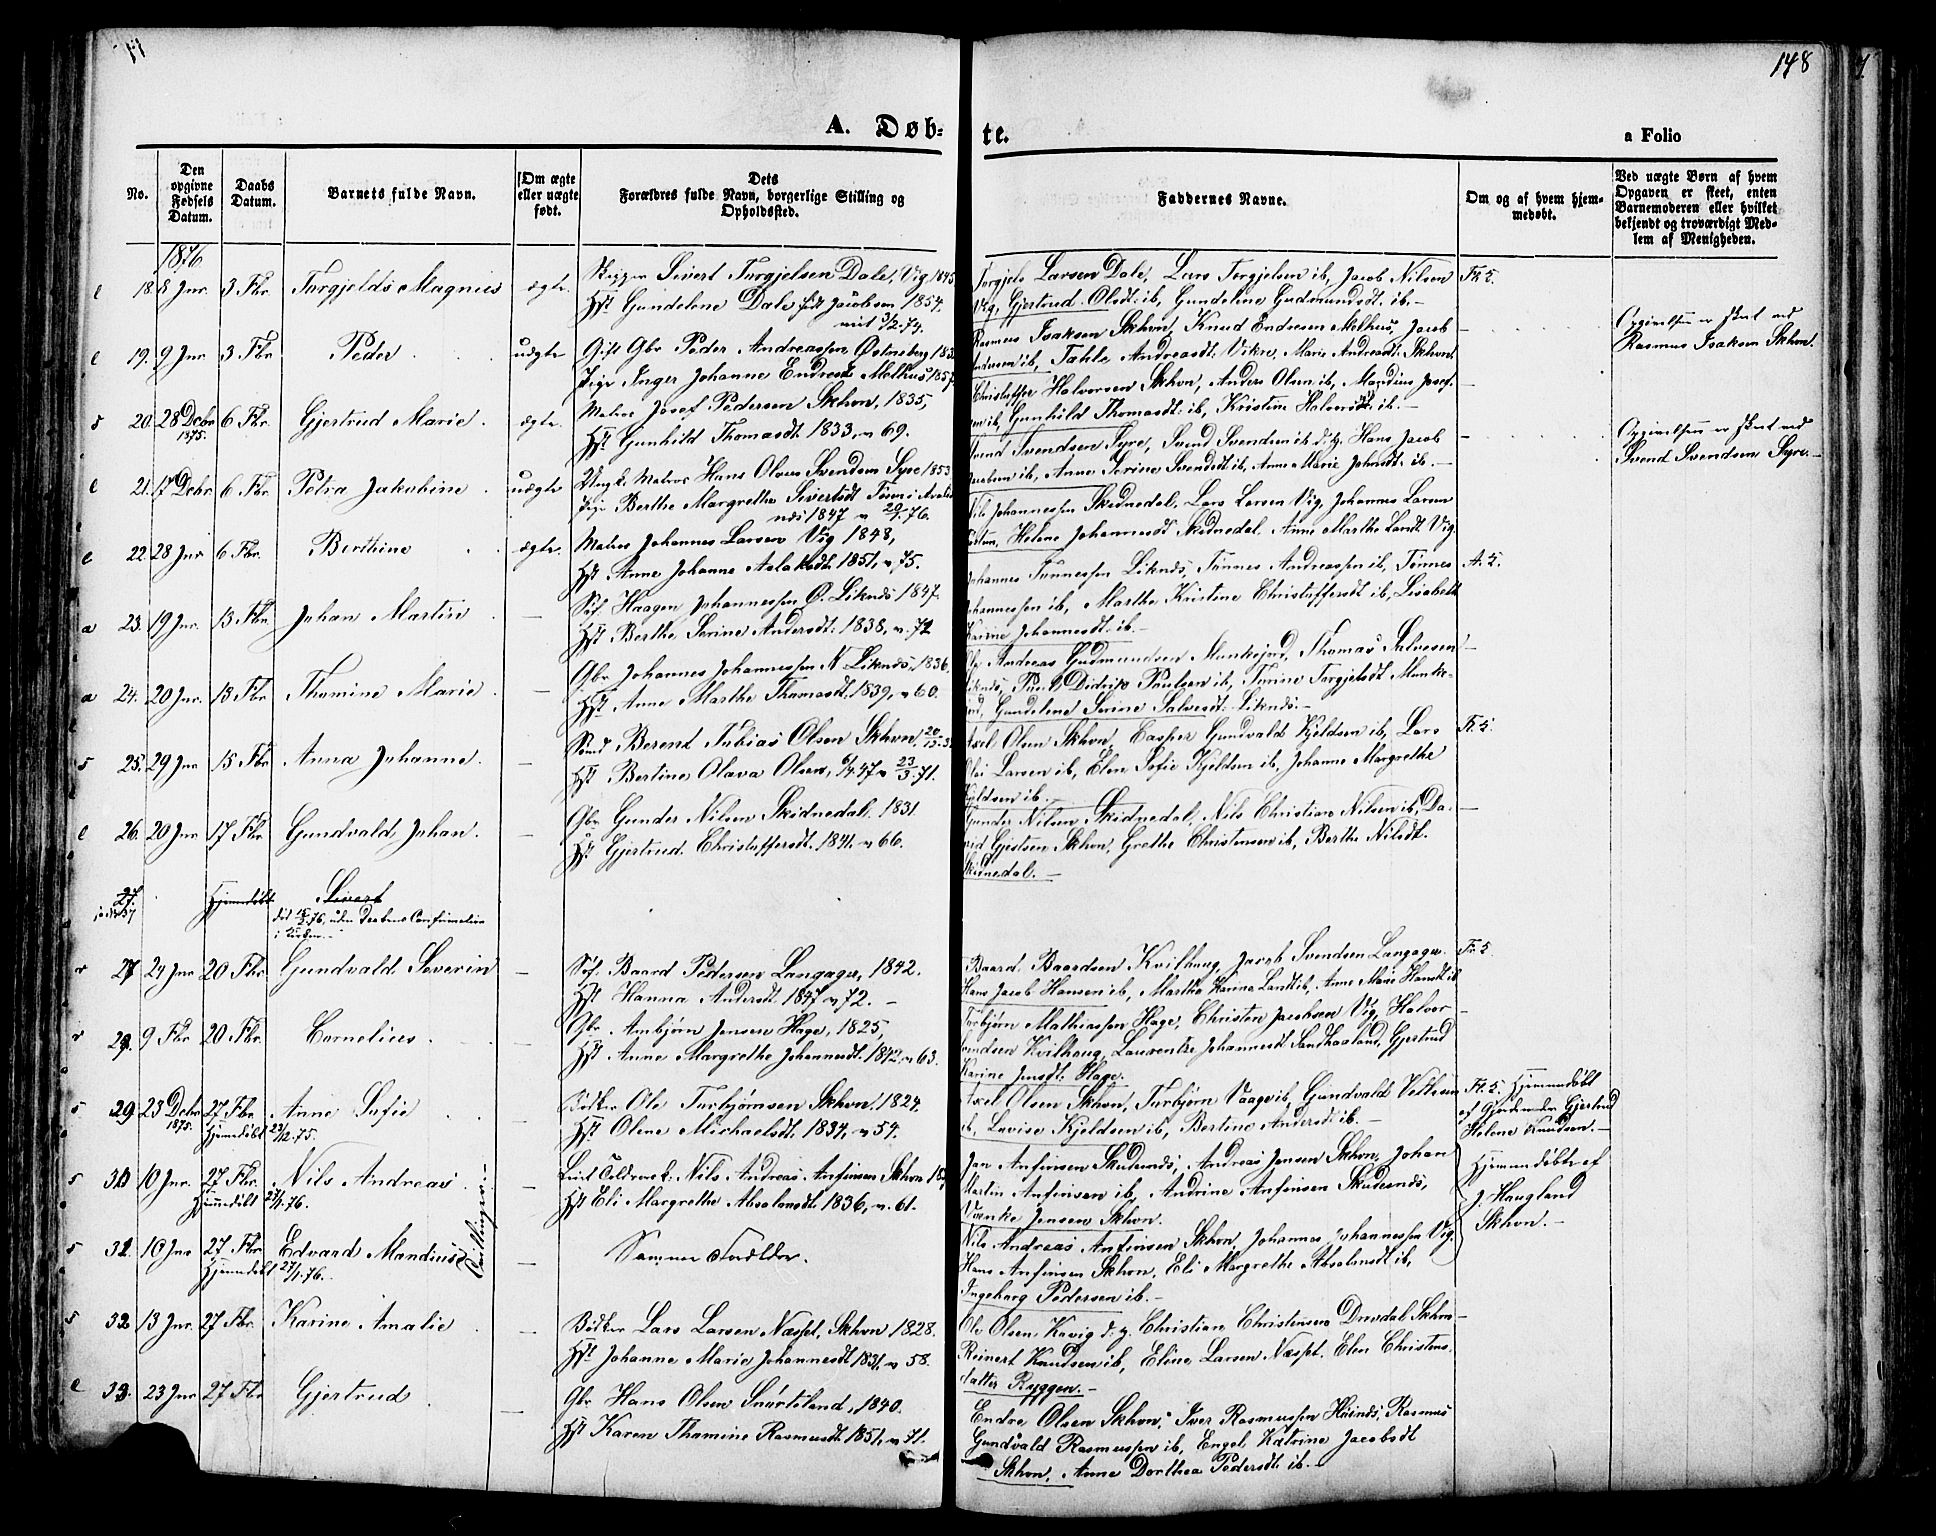 148
A. Døb-
te.
a Folio
No.
Den opgivne Fødsels Datum.
Daabs Datum.
Barnets fulde Navn.
Om ægte eller uægte født.
Dets Forældres fulde Navn, borgerlige Stilling og Opholdssted.
Faddernes Navne.
Om og af hvem hjemmedøbt.
Ved uægte Børn af hvem Opgaven er skeet, enten Barnemoderen eller hvilket bekjendt og troværdigt Medlem af Menigheden.
1876
18. 8 Jnr. 3 Fbr. Torgjelds Magnus ægte
Skipper Sivert Torgjelsen Dale, Vig 1845
Hst Gundelene Dale født Jacobsen 1854.
viet 3/2.74.
Torgjels Larsen Dale, Lars Torgjelsen ib, Jacob Nilsen
Vig, Gjertrud Olsdt: ib, Gundelene Gudmundsdt. ib. –
Fk. 5.
19. 9 Jnr. 3 Fbr Peder uægte
Gift Gbr Peder Andreassen Østensberg
Pige Inger Johanne Endresdt Melhus 1857
Rasmus Isaksen Skhvn, Knud Endresen Melhus, Jacob
Andersen ib, Tahle Andreasdt: Vikre, Marie Andreasdt: Skhvn
Opgivelsen er skeet ved
Rasmus Isaksen Skhvn.
20. 28 Decbr 1875. 6 Fbr. Gjertrud Marie. ægte.
Matros Josef Pedersen Skhvn, 1835,
Hst Gunhild Thomasdt. 1833, v 69.
Christoffer Halvorsen Skhvn, Anders Olsen ib, Mandius Josef-
sen ib, Gunhild Thomasdt: ib, Kristine Halvorsdt: ib. –
21. 17 Decbr 6 Fbr. Petra Jakobine uægte
Ungk. Matros Hans Olaus Svendsen Syre 1853
Pige Berthe Margrethe Sivertsdt
1847 v 20/1.76.
Svend Svendsen Syre, Svend Svendsen ib d. y. Hans Jacob
Jacobsen ib, Anne Serine Svendsdt ib, Anne Marie Johnsdt: ib. –
Opgivelsen er skeet ved
Svend Svendsen Syre –
22. 28 Jnr 6 Fbr. Berthine ægte.
Matros Johannes Larsen Vig 1848,
Hst Anne Johanne Aslaksdt. 1851, v. 75.
Nils Johannessen Skidnedal, Lars Larsen Vig, Johannes Larsen
Helene Johannesdt Skidnedal. Anne Marthe Larsdt Vig.
23. 19 Jnr. 13 Fbr Johan Martin –
Søf. Haagen Johannessen Ø. Liknes 1847.
Hst Berthe Serine Andersdt: 1838, v. 72
Johannes Tønnessen Liknes, Tønnes Andreassen ib, Tønnes
Johannessen ib, Marthe Kristine Christoffersdt ib, Lisabeth
Karine Johannesdt: ib –
A. 5.
24. 20 Jnr. 13 Fbr Thomine Marie –
Gbr Johannes Johannessen N. Liknes, 1836,
Hst Anne Marthe Thomasdt. 1839, v 60.
Andreas Gudmundsen Munkejord, Thomas Salvesen
Liknes, Poul Didrik Paulsen ib, Turine Torgjelsdt Munke-
jord, Gundelene Serine Salvesdt: Liknes. –
25. 29 Jnr 15 Fbr Anna Johanne. –
Berent Tobias Olsen Skhvn,
Hst Bertine Olava Olsen, 6/4.47 v 23/3.71.
Axel Olsen Skhvn, Casper Gundvald Kjeldsen ib, Lars
Larsen ib, Elen Sofie Kjeldsen ib, Johanne Margrethe
Kjeldsen ib. –
Fk. 5.
26. 20 Jnr 17 Fbr Gundvald Johan. –
Gbr Gunder Nilsen Skidnedal. 1831
Hst Gjertrud Christoffersdt. 1841. v 66.
Gunder Nilsen Skidnedal, Nils Christian Nilsen ib, Da-
vid Gjestsen Skhvn, Grethe Christensen ib, Berthe Nilsdt.
Skidnedal. –
27. Hjemmedøbt Sivert
død 76, uden Daabens Confirmation
i Kirken. –
27 24 Jnr 20 Fbr Gundvald Severin –
Søf. Baard Pedersen Langager, 1842.
Hst Hanna Andersdt. 1847 v 72. –
Baard Baardsen Kvilhaug, Jacob Svendsen Langager
Hans Jacob Hansen ib, Marthe Karine Larsdt ib, Anne Marie Hansdt ib
Fk. 5
28. 9 Fbr 20 Fbr. Cornelius. –
Gbr. Anbjørn Jensen Hage, 1825,
Hst Anne Margrethe Johannesdt. 1842, v 63.
Torbjørn Mathiassen Hage, Christen Jacobsen Vig, Halvor
Kvilhaug, Laurentze Johannesdt Sandhaaland, Gjertrud
Karine Jensdt. Hage.
29 23 Decbr 1875. 27 Fbr Anne Sofie
Hjemmedøbt 23/12.75. –
Bødker Ole Torbjørnsen Skhvn, 1824.
Hst Olene Michaelsdt. 1834, v 54.
Axel Olsen Skhvn, Torbjørn Vaage ib, Gundvald
ib, Lovise Kjeldsen ib, Bertine Andersd: ib. –
Fk. 5 Hjemmedøbt
af Gjordemoder Gjertrud
Helene Knudsen. –
30 10 Jnr. 27 Fbr. Nils Andreas.
Hjemmedøbt 27/1.76.
Tvillinger. –
Nils Andreas Anfinsen Skhvn
Hst Eli Margrethe Absalonsdt. 1836, v. 61.
Jan Anfinsen Skudesnes, Andreas Jensen Skhvn, Johan
Martin Anfinsen ib, Andrine Anfinsen Skudesnes,
Wenke Jensen Skhvn.
Hjemmedøbte af
J. Haugland
Skhvn. –
31. 10 Jnr 27 Fbr Edvard Mandius
Hjemmedøbt 27/1.76. –
Samme Forældre.
Nils Andreas Anfinsen Skhvn, Johannes Johannessen Vig,
Hans Anfinsen Skhvn, Eli Margrethe Absalonsdt ib,
Ingeborg Pedersen ib. –
32 13 Jnr. 27 Fbr. Karine Amalie –
Bødker Lars Larsen Næsset, Skhvn 1828.
Hst Johanne Marie Johannesdt 1831, v 58.
Ole Olsen Kavig d. y. Christian Christensen Dversdal Skhvn –
Reinert Knudsen ib, Eline Larsen Næsset. Elen Christens-
datter Ryggen. –
33. 23 Jnr 27 Fbr Gjertrud –
Gbr Hans Olsen Snørteland, 1840.
Hst Karen Thomine Rasmusdt. 1851, v 71.
Endre Olsen Skhvn, Iver Rasmussen Høines, Rasmus
Gundvald Rasmussen ib, Engel Katrine Jacobsdt
Skhvn, Anne Dorthea Pedersdt: ib. –